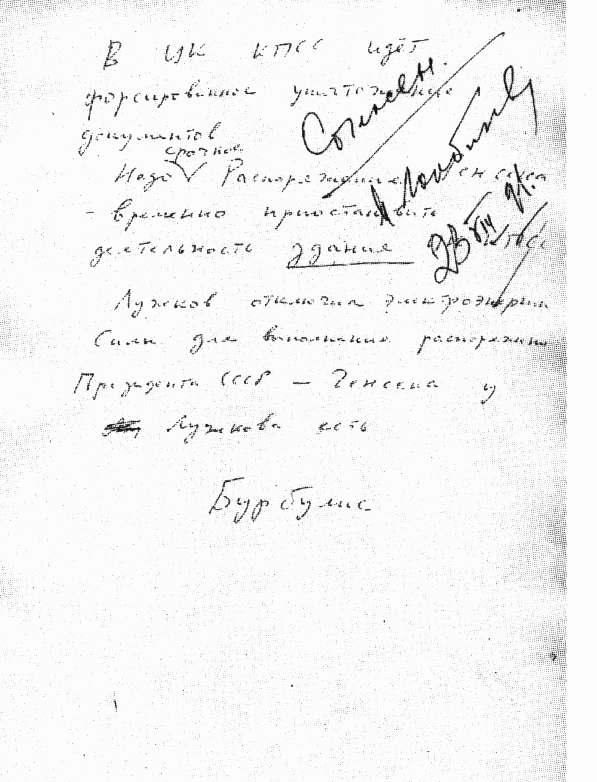 В ЦК КПСС идёт
форсированное уничтожение
документов
срочное
Надо √ Распоряжение Генсека
- временно приостановить
деятельность здания КПСС
Лужков отключил электроэнергию
Силы для выполнения распоряжения
Президента СССР – Генсека у
Лужкова есть
Бурбулис
Согласен.
23 VIII 91.